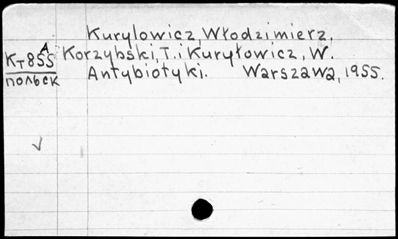 Kurylowicz, Włodzimierz.
A
Кт855 Korzybski, T. i Kuryłowicz, W.
польск Antybiotyki. Warszawa, 1955.